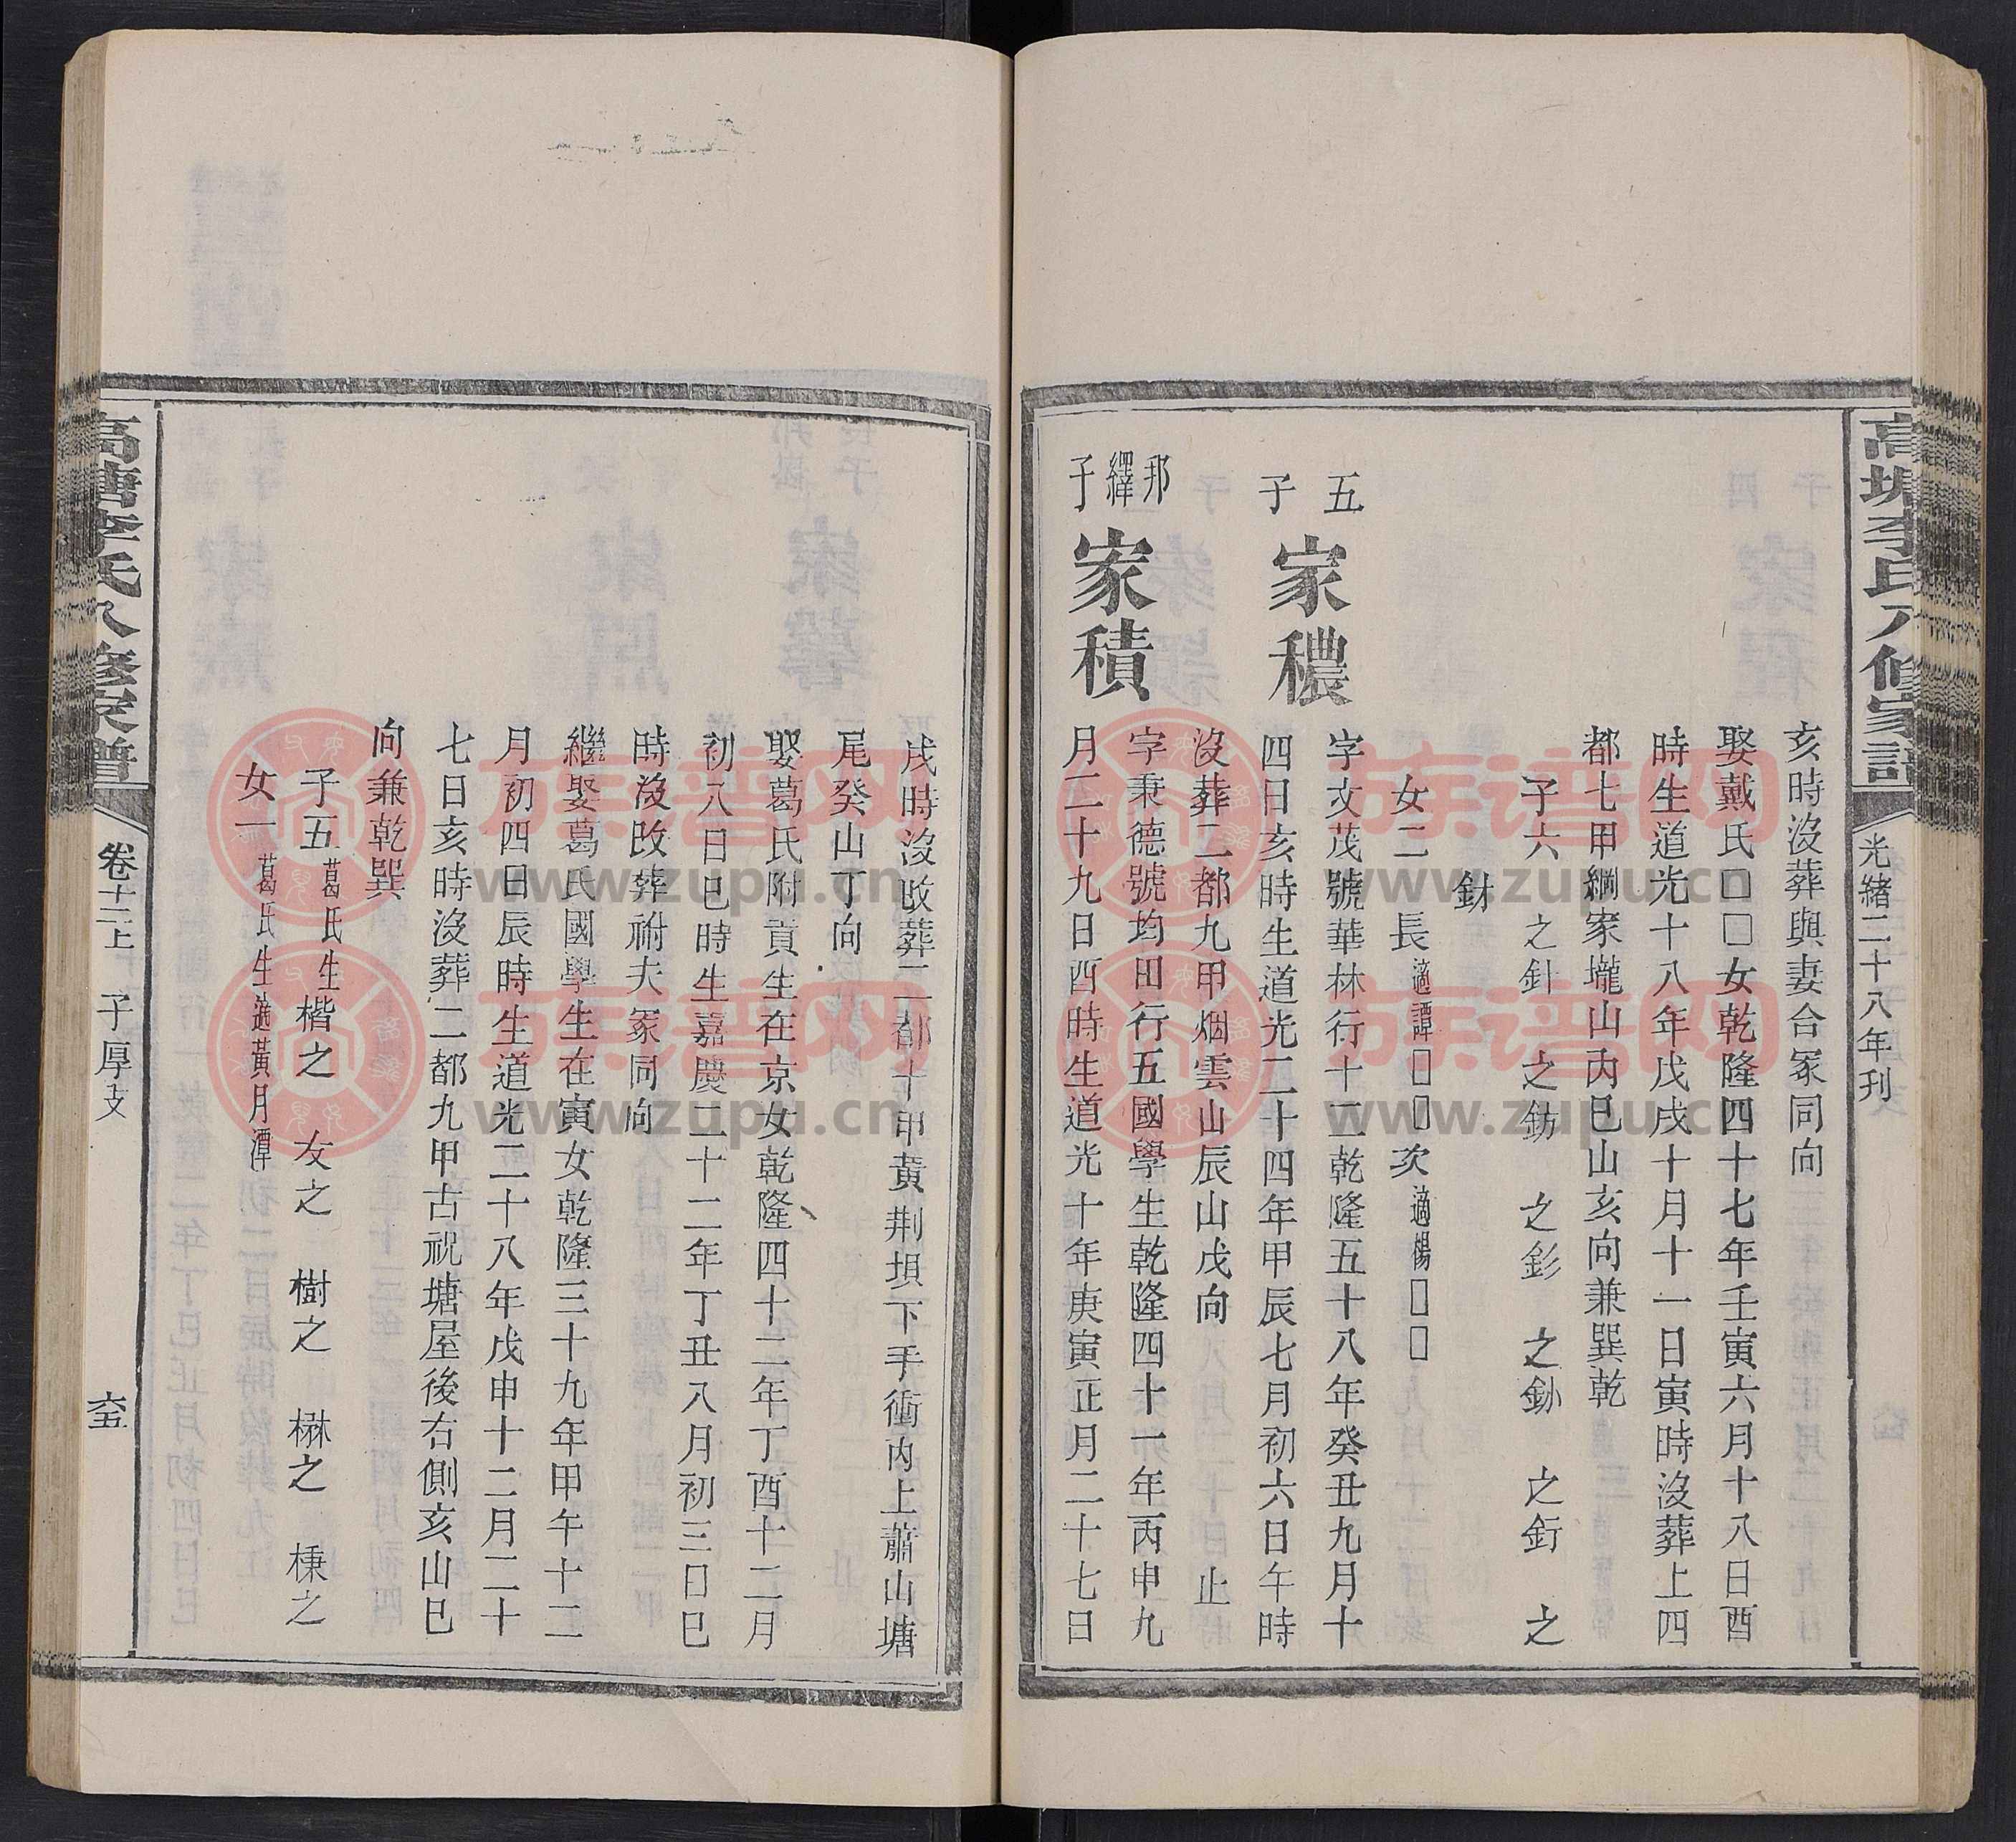 高塘李氏八修家譜
光緒二十八年刊
亥時沒葬與妻合冢同向
娶戴氏□□女乾隆四十七年壬寅六月十八日酉
時生道光十八年戊戌十月十一日寅時沒葬上四
都七甲綱家壠山丙巳山亥向兼巽乾
子六 之針 之鈁 之釤 之鈔 之銜 之
釮
女二 長適譚□□次適楊□□
五子 家穠 字文茂號華林行十二乾隆五十八年癸丑九月十
四日亥時生道光二十四年甲辰七月初六日午時
沒葬二都九甲烟雲山辰山戌向 止
邦繹子 家積 字秉德號均田行五國學生乾隆四十一年丙申九
月二十九日酉時生道光十年庚寅正月二十七日
戌時沒改葬二都十甲黄荆垻下手衝內上蕭山塘
尾癸山丁向
娶葛氏附貢生在京女乾隆四十二年丁酉十二月
初八日巳時生嘉慶二十二年丁丑八月初三日巳
時沒改葬祔夫冢同向
繼娶葛氏國學生在寅女乾隆三十九年甲午十二
月初四日辰時生道光二十八年戊申十二月二十
七日亥時沒葬二都九甲古祝塘屋後右側亥山巳
向兼乾巽
子五葛氏生楷之 友之 樹之 楙之 秉之
女一葛氏生適黃月潭
高塘李氏八修家譜
卷十二上 子厚支
六五
族谱网
www.zupu.cn
族谱网
www.zupu.cn
族谱网
www.zupu.cn
族谱网
www.zupu.cn